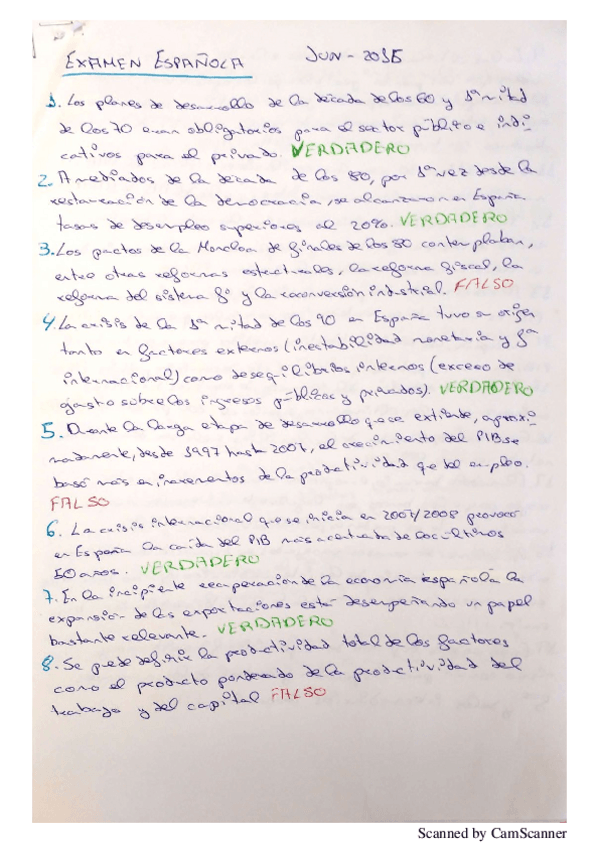 EXAMEN ESPAÑOLA JUN-2015
1. Los planes de desarrollo de la década de los 60 y 1ª mitad
de los 70 eran obligatorios para el sector público e indi
cativos para el privado. VERDADERO
2. A mediados de la década de los 80, por 1ª vez desde la
restauración de la democracia, se alcanzaron en España
tasas de desempleo superiores al 20%. VERDADERO
3. Los pactos de la Moncloa de finales de los 80 contemplaban,
entre otras reformas estructurales, la reforma fiscal, la
reforma del sistema fº y la reconversión industrial. FALSO
4. La crisis de la 1ª mitad de los 90 en España tuvo su origen
tanto en factores externos (inestabilidad monetaria y fª
internacional) como desequilibrios internos (exceso de
gasto sobre los ingresos públicos y privados). VERDADERO
5. Durante la larga etapa de desarrollo que se extiende, aproxi
madamente, desde 1997 hasta 2007, el crecimiento del PIB se
basó más en incrementos de la productividad que del empleo.
FALSO
6. La crisis internacional que se inicia en 2007/2008 provocó
en España la caída del PIB más acentuada de los últimos
50 años. VERDADERO
7. En la incipiente recuperación de la economía española la
expansión de las exportaciones está desempeñando un papel
bastante relevante. VERDADERO
8. Se puede definir la productividad total de los factores
como el producto ponderado de la productividad del
trabajo y del capital FALSO
Scanned by CamScanner